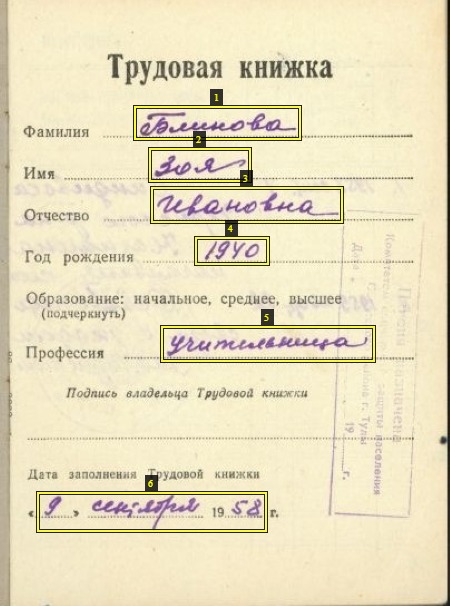 Трудовая книжка
Фамилия Блинова
Имя Зоя
Отчество Ивановна
Год рождения 1940
Образование: начальное, среднее, высшее
(подчеркнуть)
Профессия учительница
Подпись владельца Трудовой книжки
Дата заполнения Трудовой книжки
« 9 » сентября 1958 г.
1
2
3
4
5
6